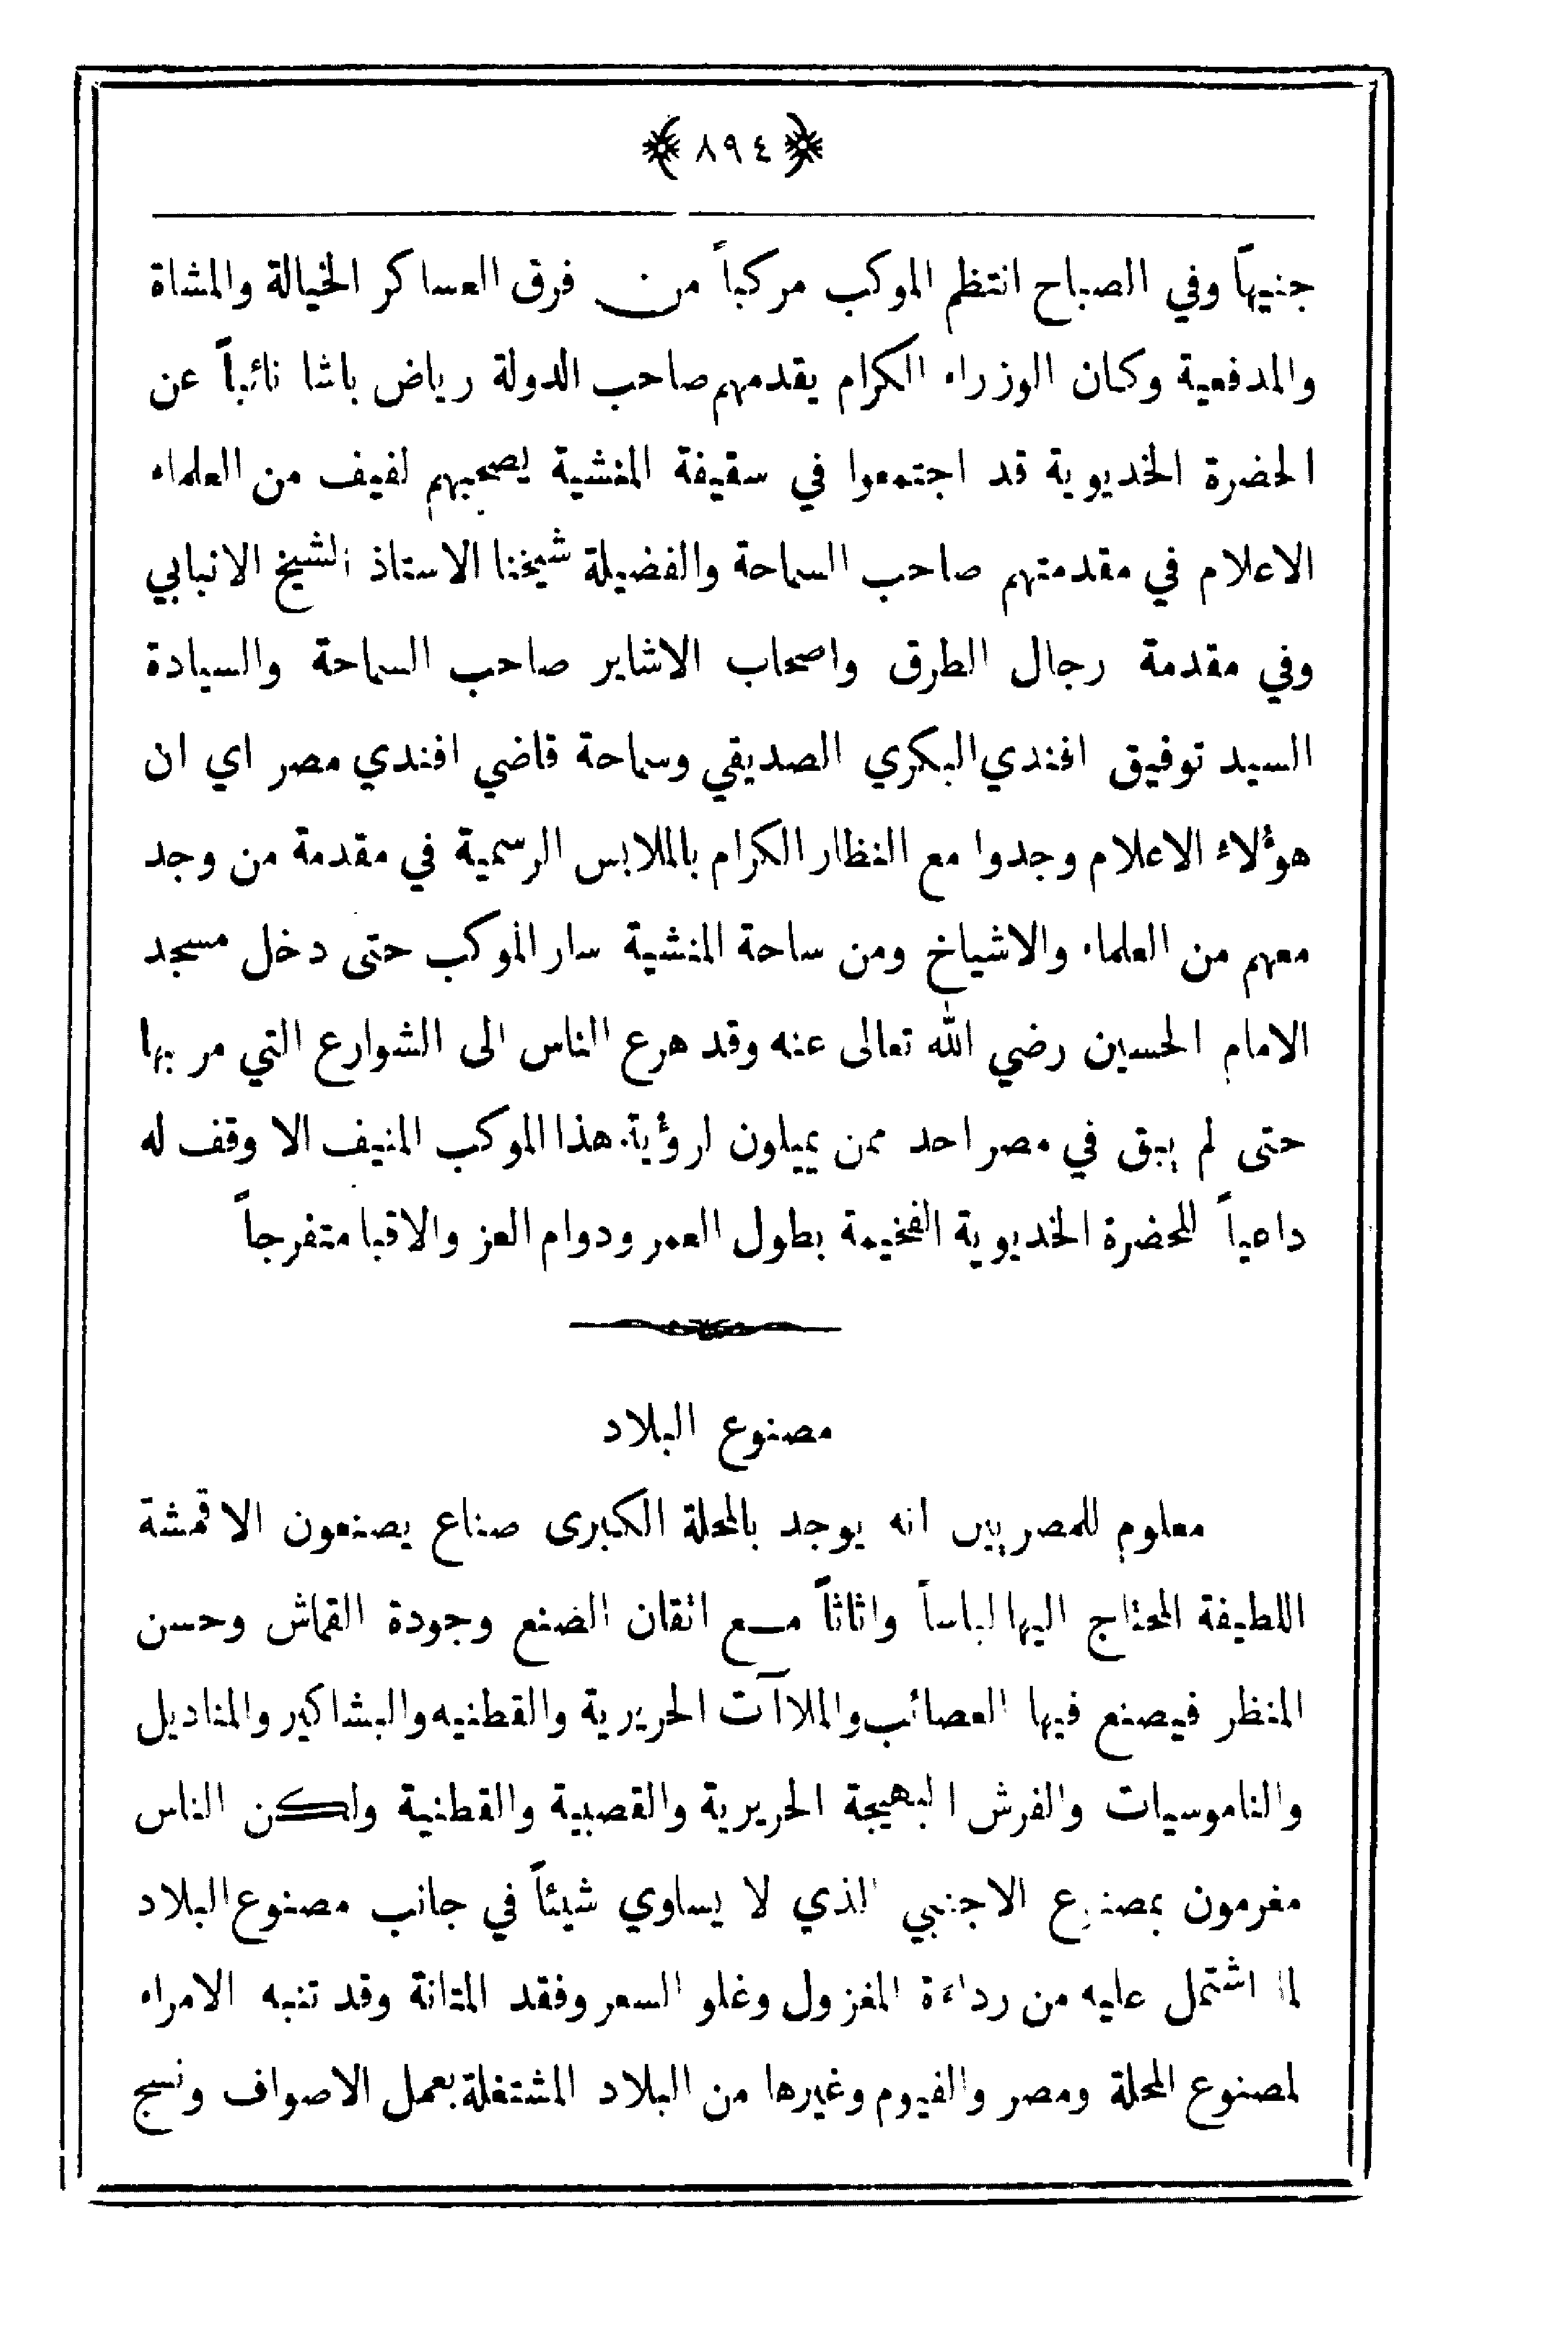 ٨٩٤
جنيهاً وفي الصباح انتظم الموكب مركباً من فرق العساكر الخيالة والمشاة
والمدفعية وكان الوزراء الكرام يقدمهم صاحب الدولة رياض باشا نائباً عن
الحضرة الخديوية قد اجتمعوا في سقيفة المنشية يصحبهم لفيف من العلماء
الاعلام في مقدمتهم صاحب السماحة والفضيلة شيخنا الاستاذ الشيخ الانبابي
وفي مقدمة رجال الطرق واصحاب الاشاير صاحب السماحة والسيادة
السيد توفيق افندي البكري الصديقي وسماحة قاضي افندي مصر اي ان
هؤلاء الاعلام وجدوا مع النظار الكرام بالملابس الرسمية في مقدمة من وجد
معهم من العلماء والاشياخ ومن ساحة المنشية سار الموكب حتى دخل مسجد
الامام الحسين رضي الله تعالى عنه وقد هرع الناس الى الشوارع التي مر بها
حتى لم يبق في مصر احد ممن يميلون لرؤية هذا الموكب المنيف الا وقف له
داعياً للحضرة الخديوية الفخيمة بطول العمر ودوام العز والاقبا متفرجاً
مصنوع البلاد
معلوم للمصريين انه يوجد بالمحلة الكبرى صناع يصنعون الاقمشة
اللطيفة المحتاج اليها لباساً واثاثاً مع اتقان الصنع وجودة القماش وحسن
المنظر فيصنع فيها العصائب والملاآت الحريرية والقطنيه والبشاكير والمناديل
والناموسيات والفرش البهيجة الحريرية والقصبية والقطنية ولكن الناس
مغرمون بمصنوع الاجنبي الذي لا يساوي شيئاً في جانب مصنوع البلاد
لما اشتمل عليه من رداءة المغزول وغلو السعر وفقد المتانة وقد تنبه الامراء
لمصنوع المحلة ومصر والفيوم وغيرها من البلاد المشتغلة بعمل الاصواف ونسج